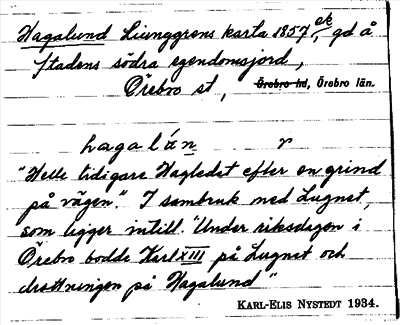 Hagalund Liunggrens karta 1857, ek, gd å
Stadens södra egendomsjord,
Örebro st, Örebro hd, Örebro län.
hagalán r
"Hette tidigare Hagledet efter en grind
på vägen." I sambruk med Lugnet,
som ligger intill. "Under riksdagen i
Örebro bodde Karl XIII på Lugnet och
drottningen på Hagalund"
KARL-ELIS NYSTEDT 1934.